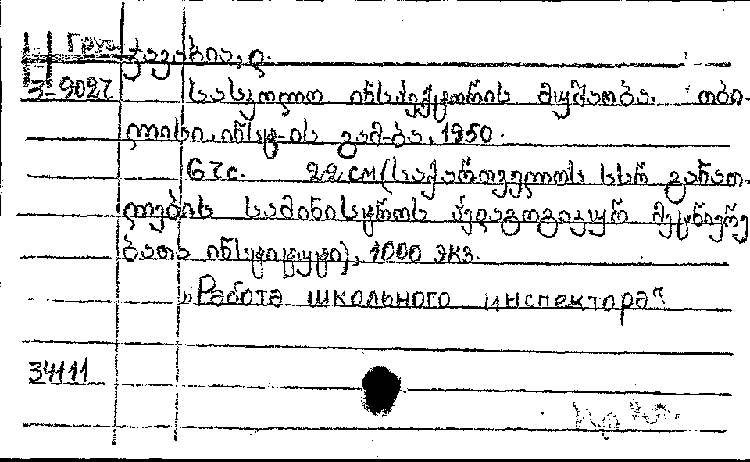 Груз
ჯავახია, დ.
3-9027 სასკოლო ინსპექტორის მუშაობა. თბი-
ლისი, ინსტ-ის გამ-ბა, 1950.
67с. 22 см (საქართველოს სსრ განათ-
ლების სამინისტროს პედაგოგიკურ მეცნიერე
ბათა ინსტიტუტი), 1000 экз.
„Работа школьного инспектора“
34111